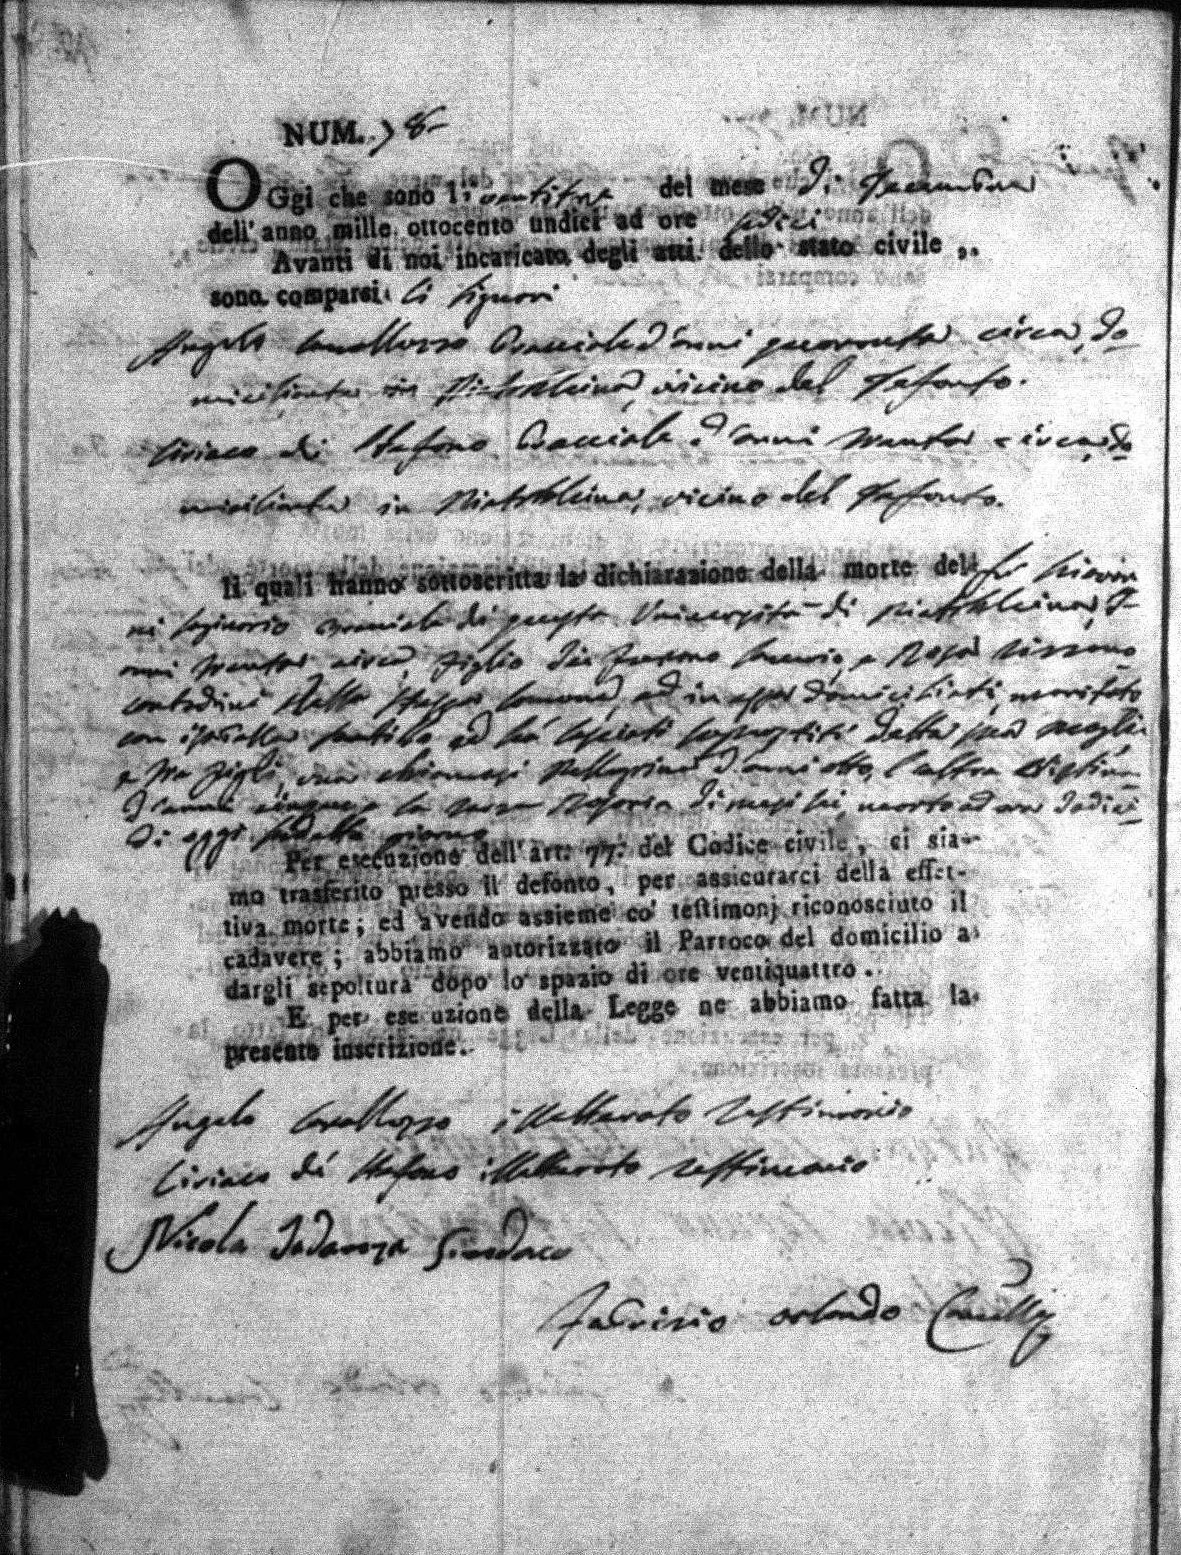 NUM. 78
OGgi che sono li ventitre del mese di Decembre
dell'anno mille ottocento undici ad ore sedici
Avanti di noi incaricato degli atti dello stato civile ,,
sono comparsi li Signori
Angelo Cavalluzzo Bracciale d'anni quaranta circa, do-
miciliante in Pietrelcina, vicino del Defonto.
Ciriaco di Stefano Bracciale d'anni trenta circa, do-
miciliante in Pietrelcina, vicino del Defonto.
Il quali hanno sottoscritta la dichiarazione della morte del fu Giovan
ni Bracciale di questa Università di Pietrelcina, d'-
anni trenta circa, figlio di e Rosa
contadini della stessa Comune, ed in essa domiciliati, maritato
con ed ha lasciati dalla sua moglie
e tre figli, una chiamasi Pellegrina d'anni otto, l'altra
d'anni cinque, e la terza di mesi sei, morto ad ore dodici
di oggi giorno
Per esecuzione dell'art. 77. del Codice civile, ci sia-
mo trasferito presso il defonto, per assicurarci della effet-
tiva morte; ed avendo assieme co' testimonj riconosciuto il
cadavere; abbiamo autorizzato il Parroco del domicilio a
dargli sepoltura dopo lo spazio di ore ventiquattro.
E per ese uzione della Legge ne abbiamo fatta la
presente inscrizione.
Angelo Cavalluzzo illetterato testimonio
Ciriaco di Stefano illetterato testimonio
Nicola Iadanza Sindaco
Fabrizio Orlando